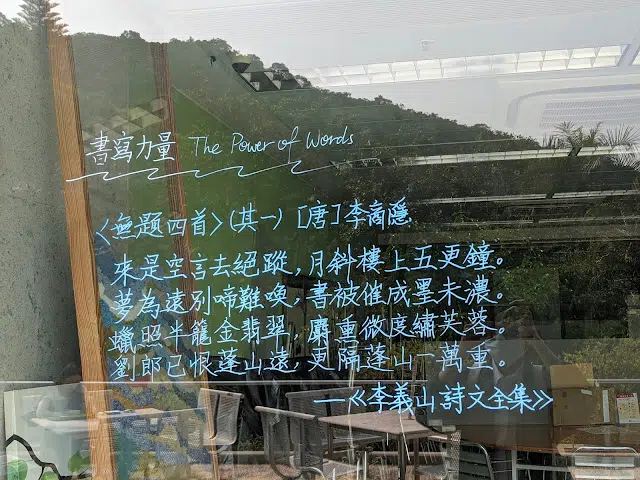 書寫力量 The Power of Words
〈無題四首〉(其一) [唐] 李商隱
來是空言去絕蹤，月斜樓上五更鐘。
夢為遠別啼難喚，書被催成墨未濃。
蠟照半籠金翡翠，麝熏微度繡芙蓉。
劉郎已恨蓬山遠，更隔蓬山一萬重。
—《李義山詩文全集》